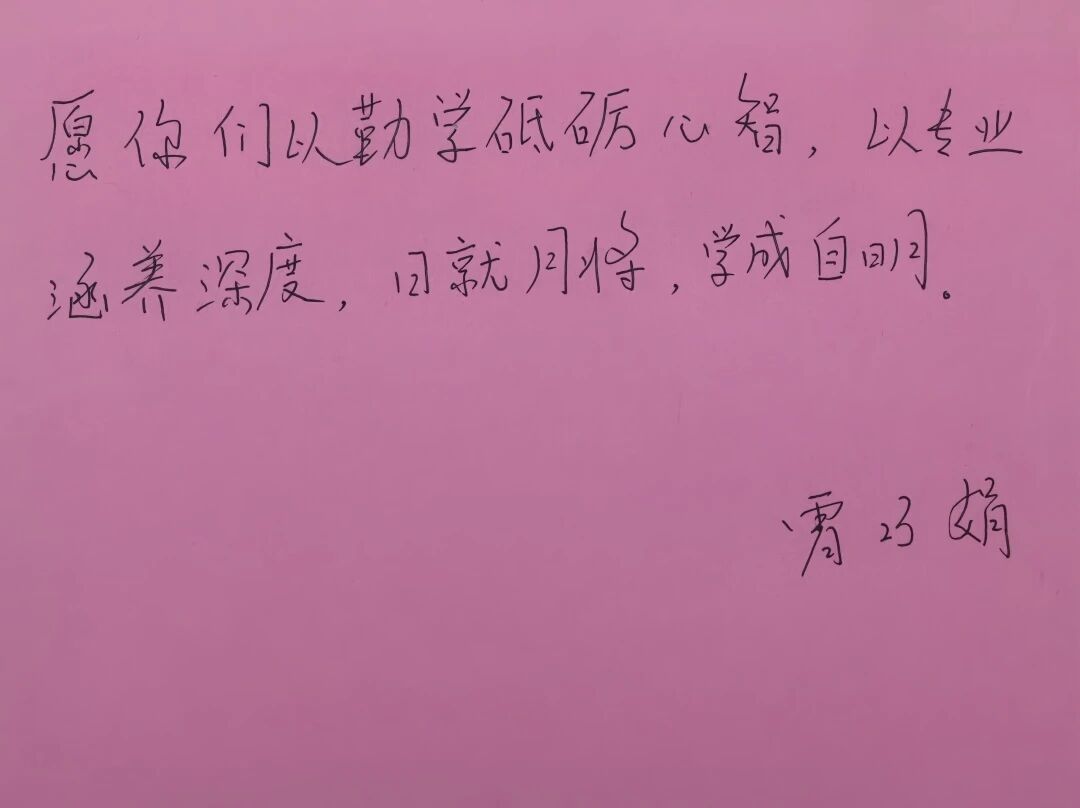 愿你们以勤学砥砺心智，以专业
涵养深度，日就月将，学成自明。
巧娟